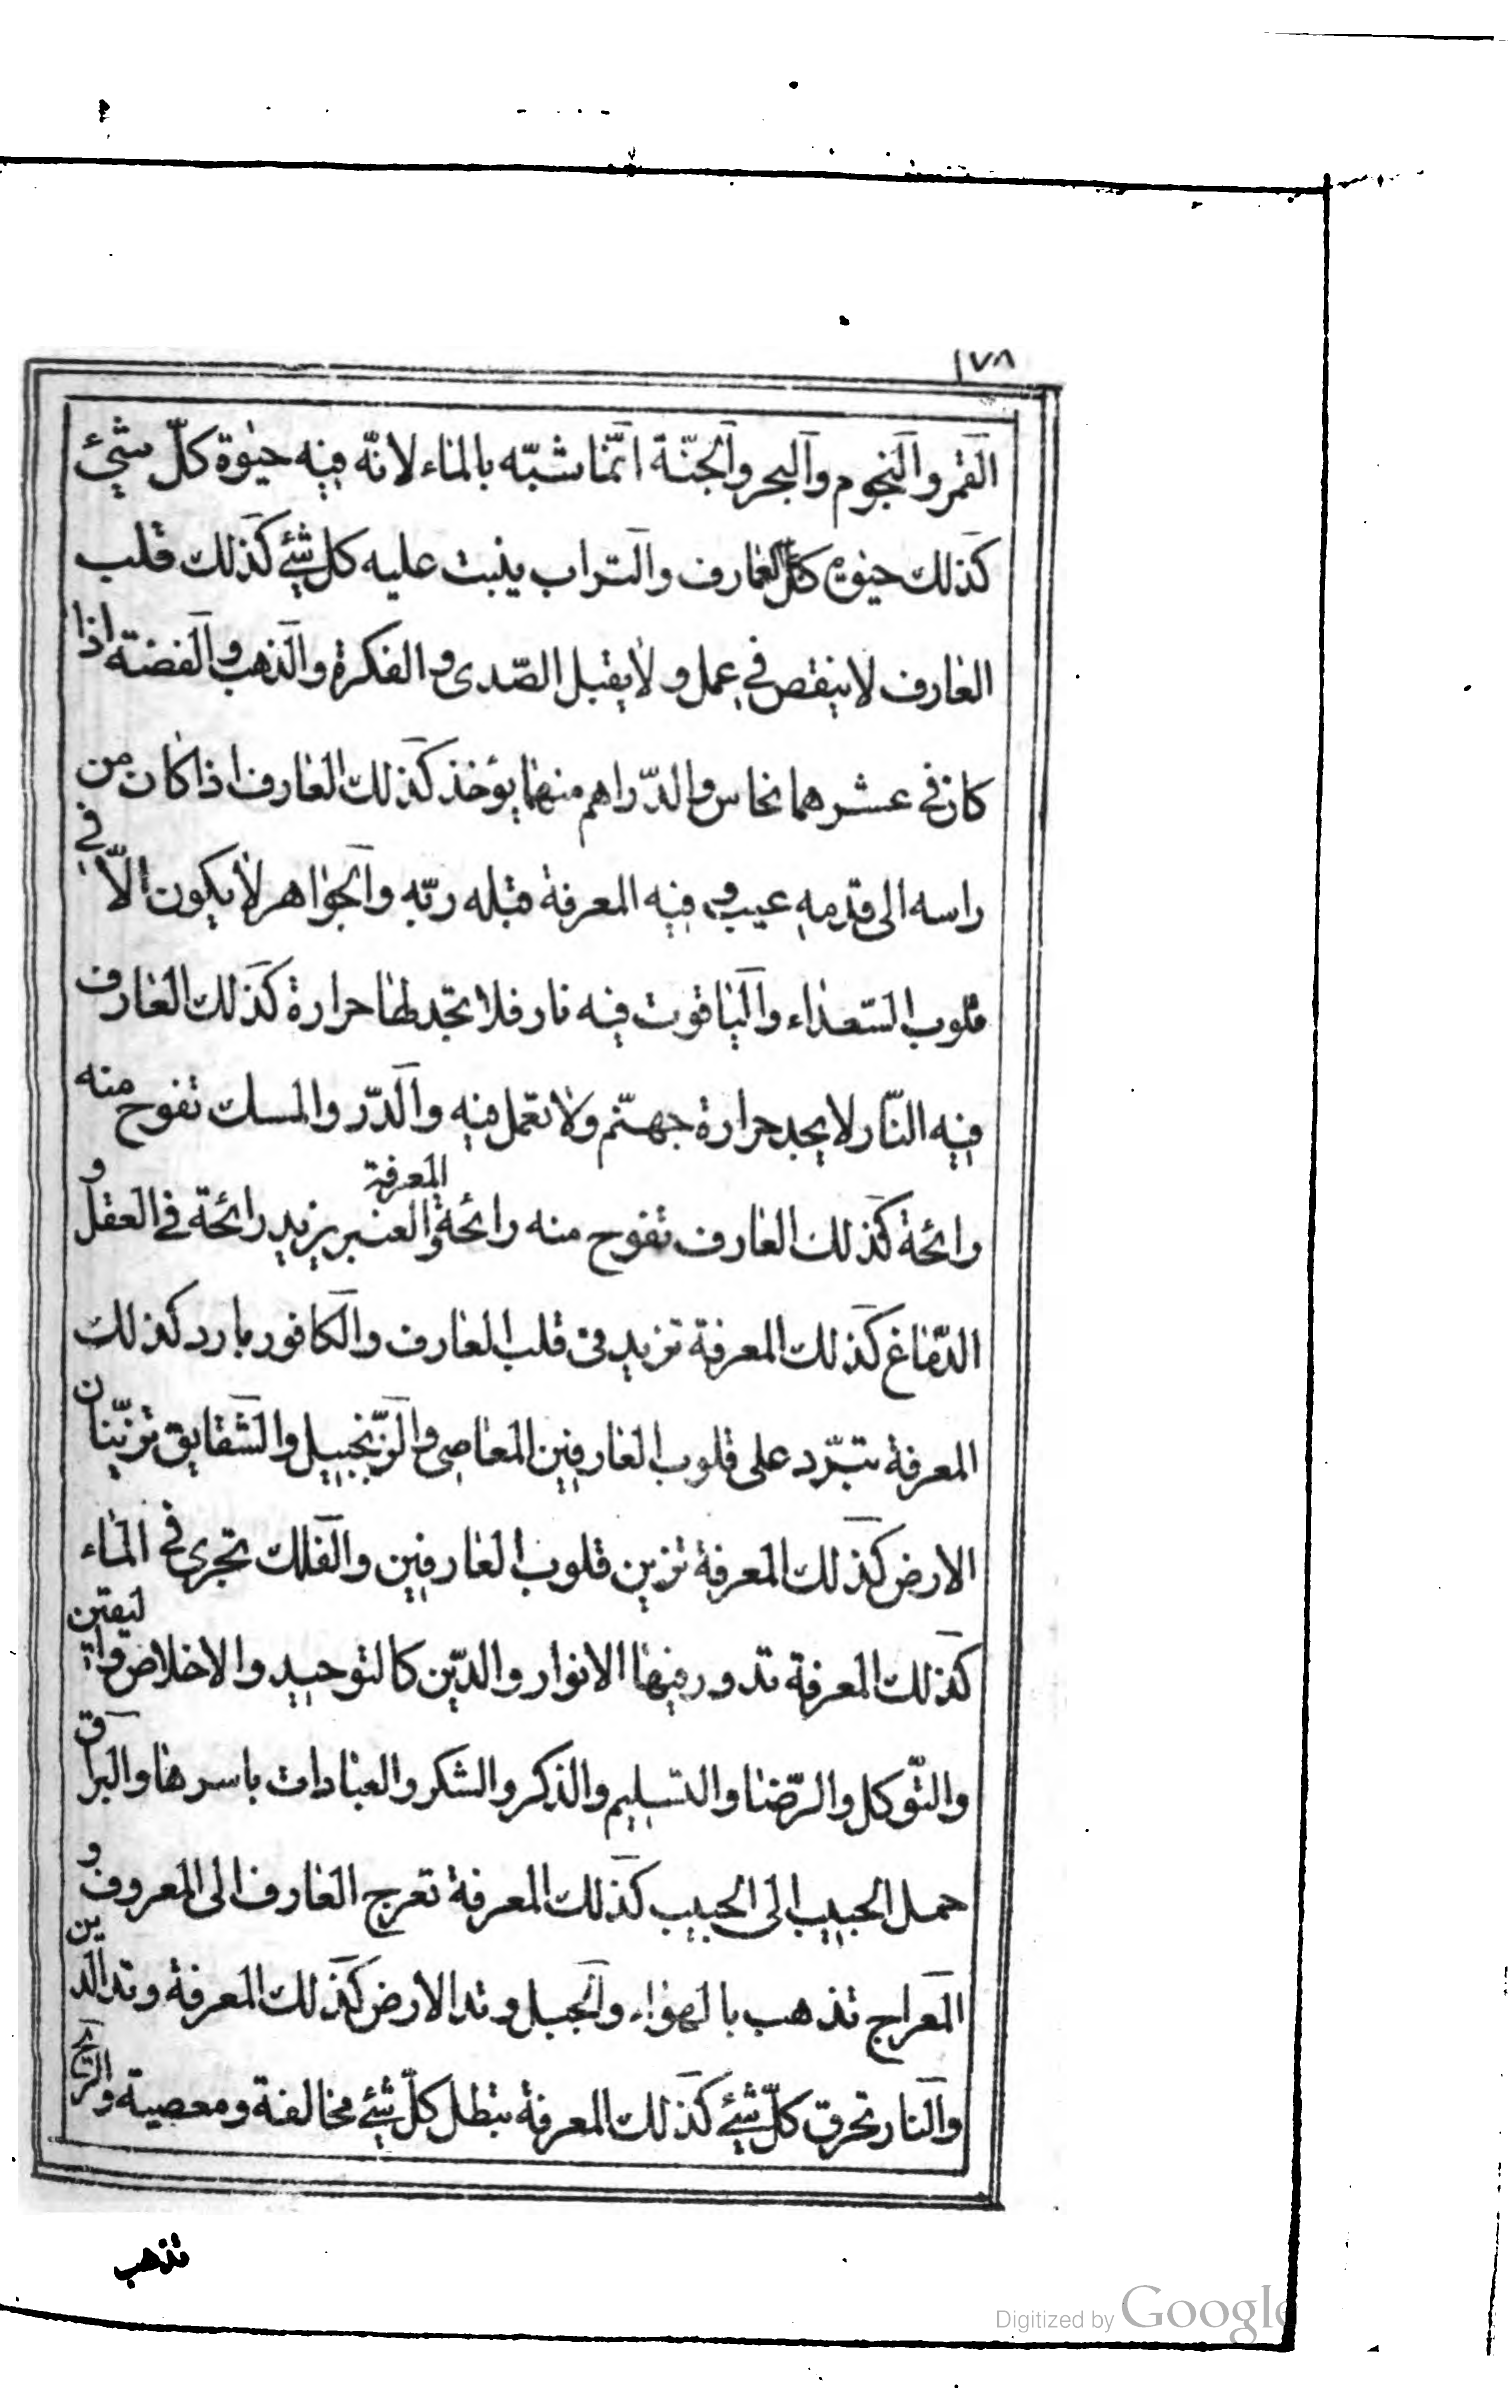 ١٧٨
القمر والنجوم والبحر والجنّة انّما شبّه بالماء لانّه فيه حيٰوة كلّ شئ
كذلك حيٰوة كلّ العارف والتراب ينبت عليه كل شئ كذلك قلب
العارف لا ينقص فى عمل ولا يقبل الصّدى والفكرة والذهب والفضّة اذا
كان فى عشرهما نحاس والدّراهم منهما يؤخذ كذلك العارف اذا كان من
راسه الى قدمه عيب وفيه المعرفة قبله ربّه والجواهر لا يكون الّا فى
قلوب السّعداء والياقوت فيه نار فلا تجد لها حرارة كذلك العارف
فيه النّار لا يجد حرارة جهنّم ولا تعمل فيه والدّر والمسك تفوح منه
رائحة كذلك العارف تفوح منه رائحة المعرفة والعنبر يزيد رائحة فى العقل و
الدّماغ كذلك المعرفة تزيد فى قلب العارف والكافور بارد كذلك
المعرفة تبرّد على قلوب العارفين المعاصى والزّنجبيل والشقايق تزيّنان
الارض كذلك المعرفة تزين قلوب العارفين والفلك تجرى فى الماء
كذلك المعرفة تدور فيها الانوار والدّين كالتوحيد والاخلاص واليقين
والتّوكل والرّضا والتسليم والذكر والشكر والعبادات باسرها والبراق
حمل الحبيب الى الحبيب كذلك المعرفة تعرج العارف الى المعروف و
المعراج تذهب بالهواء والجبل وتد الارض كذلك المعرفة وتد الدين
والنار تحرق كلّ شئ كذلك المعرفة تبطل كلّ شئ مخالفة ومعصية والرّيح
تذهب
Digitized by Google